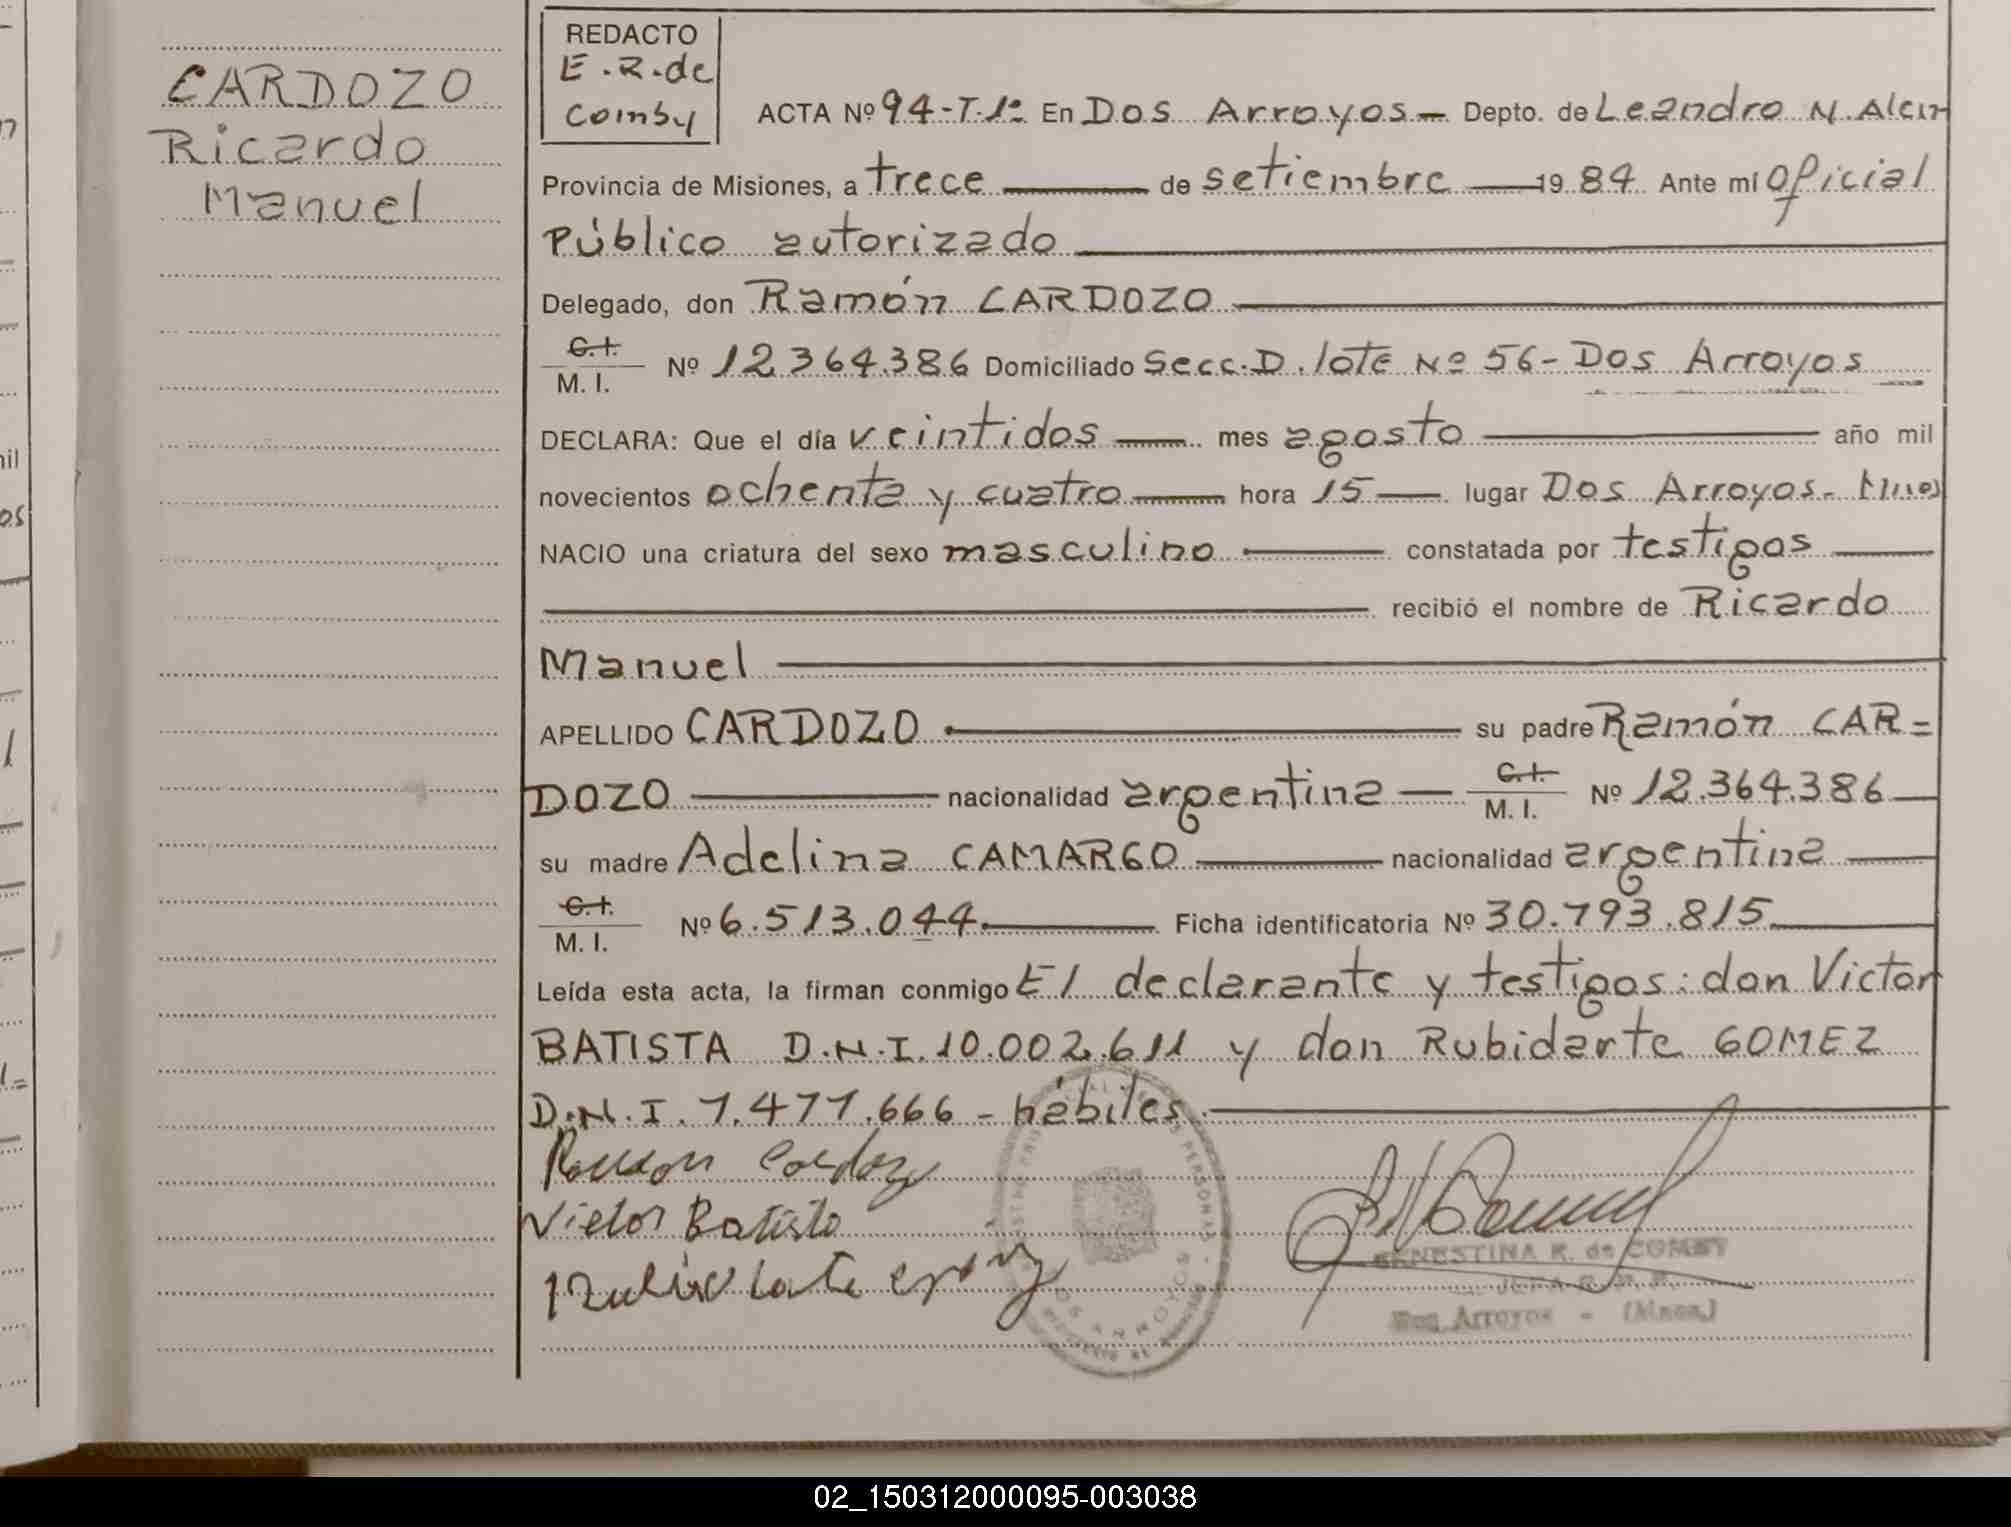 CARDOZO
Ricardo
Manuel
REDACTO
E.R.de
Comby
ACTA Nº 94-T.1º En Dos Arroyos - Depto. de Leandro N. Alem
Provincia de Misiones, a trece de setiembre 1984 Ante mí Oficial
Público autorizado
Delegado, don Ramón CARDOZO
C.I.
M. I. Nº 12.364.386 Domiciliado Secc.D.lote Nº 56-Dos Arroyos
DECLARA: Que el día veintidos mes agosto año mil
novecientos ochenta y cuatro hora 15 lugar Dos Arroyos-
NACIO una criatura del sexo masculino constatada por testigos
recibió el nombre de Ricardo
Manuel
APELLIDO CARDOZO su padre Ramón CAR=
DOZO nacionalidad argentina C.I. M. I. Nº 12.364.386
su madre Adelina CAMARGO nacionalidad argentina
C.I.
M. I. Nº 6.513.044 Ficha identificatoria Nº 30.793.815
Leída esta acta, la firman conmigo El declarante y testigos: don Victor
BATISTA D.N.I.10.002.611 y don Rubidarte GOMEZ
D.N.I.7.477.666 - hábiles
Ramon Cardozo
Victor Batista
ERNESTINA R. de COMBY
Dos Arroyos - (Mnes.)
DOS ARROYOS
02_150312000095-003038